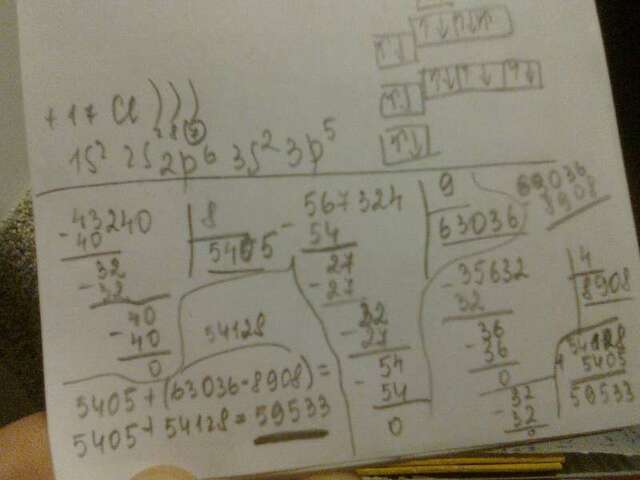 +17 Cl )))
2 8 7
1s² 2s 2p⁶ 3s² 3p⁵
↑↓ ↑↓ ↑
↑↓
↑↓ ↑↓ ↑↓
↑↓
↑↓
-43240 | 8
40 | 5405
32
-32
40
-40
0
-567324 | 9
54 | 63036
27
-27
32
-27
54
-54
0
-35632 | 4
32 | 8908
36
-36
0
32
-32
0
63036
8908
54128
+54128
5405
59533
5405 + (63036-8908) =
5405 + 54128 = 59533